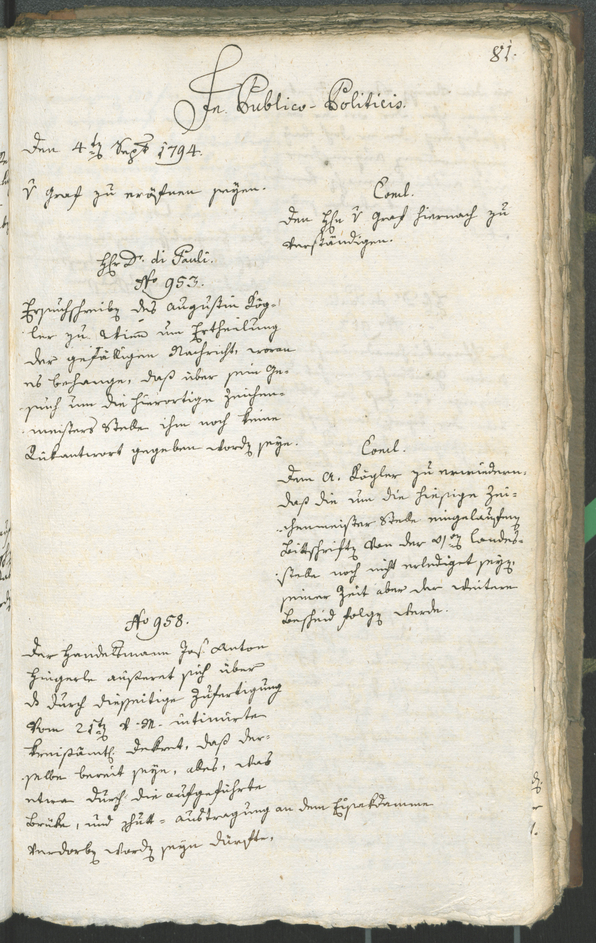 81.
In Publico-Politicis.
Den 4tn Septb 1794.
v Graf zu eröfnen seyen.
Concl.
Den Hhn v Graf hiernach zu
verständigen.
Hhr Dr. di Pauli.
No 953.
Ersuchschreibn des Augustin Kög-
ler zu um Ertheilung
der gefälligen Nachricht, woran
es behange, daß über sein Ge-
such um die hierortige Zeichen-
meisters Stelle ihm noch keine
Rükantwort gegeben wordn seye.
Concl.
Dem A. Kögler zu erwiedern,
daß die um die hiesige Zei-
chenmeister Stelle eingelaufenn
Bittschriftn von der Landes-
stelle noch nicht erlediget seyn,
seiner Zeit aber der weitere
Bescheid folgn werde.
No 958.
Der Handelsmann Jos. Anton
Zingerle äußeret sich über
ds durch dießeitige Zufertigung
vom 21tn v. M. intimirte
kreisämtl. Dekret, daß der-
selbe bereit seye, alles, was
etwa durch die aufgeführte
Brüke, und Schutt-Austragung an dem Eisakdamme
verdorbn wordn seyn dürfte,